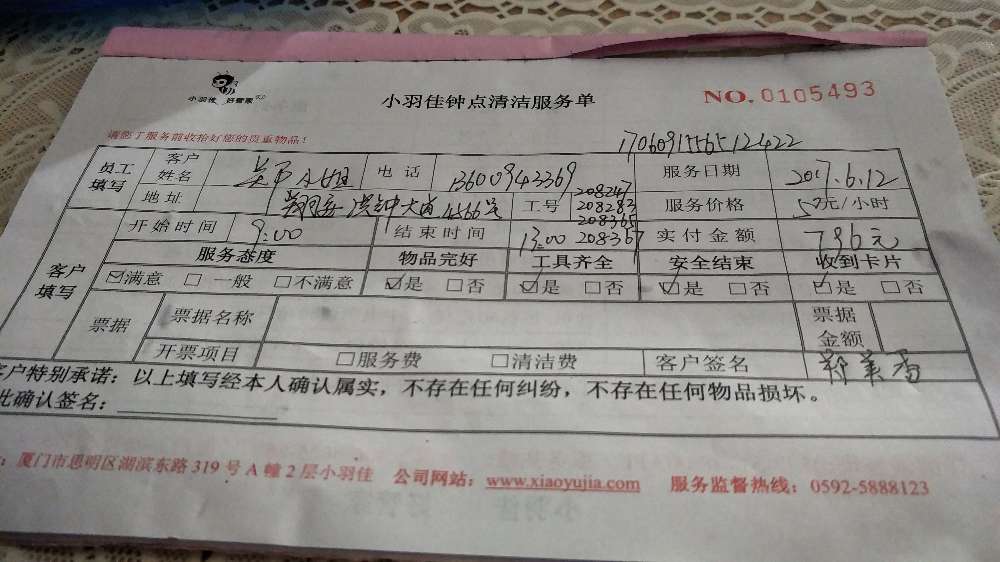 小羽佳 好管家
小羽佳钟点清洁服务单
NO. 0105493
请您于服务前收拾好您的贵重物品！
1706091556512422
员工填写 客户姓名 小姐 电话 13600943369 服务日期 2017.6.12
地址 洪钟大道4566号 工号 208247 208283 208365 208367 服务价格 元/小时
开始时间 9:00 结束时间 13:00 实付金额 796元
客户填写 服务态度 物品完好 工具齐全 安全结束 收到卡片
☑满意 □一般 □不满意 ☑是 □否 ☑是 □否 ☑是 □否 ☑是 □否
票据 票据名称 票据金额
开票项目 □服务费 □清洁费 客户签名 郑美香
客户特别承诺：以上填写经本人确认属实，不存在任何纠纷，不存在任何物品损坏。
此确认签名：
厦门市思明区湖滨东路319号A幢2层小羽佳 公司网站：www.xiaoyujia.com 服务监督热线：0592-5888123